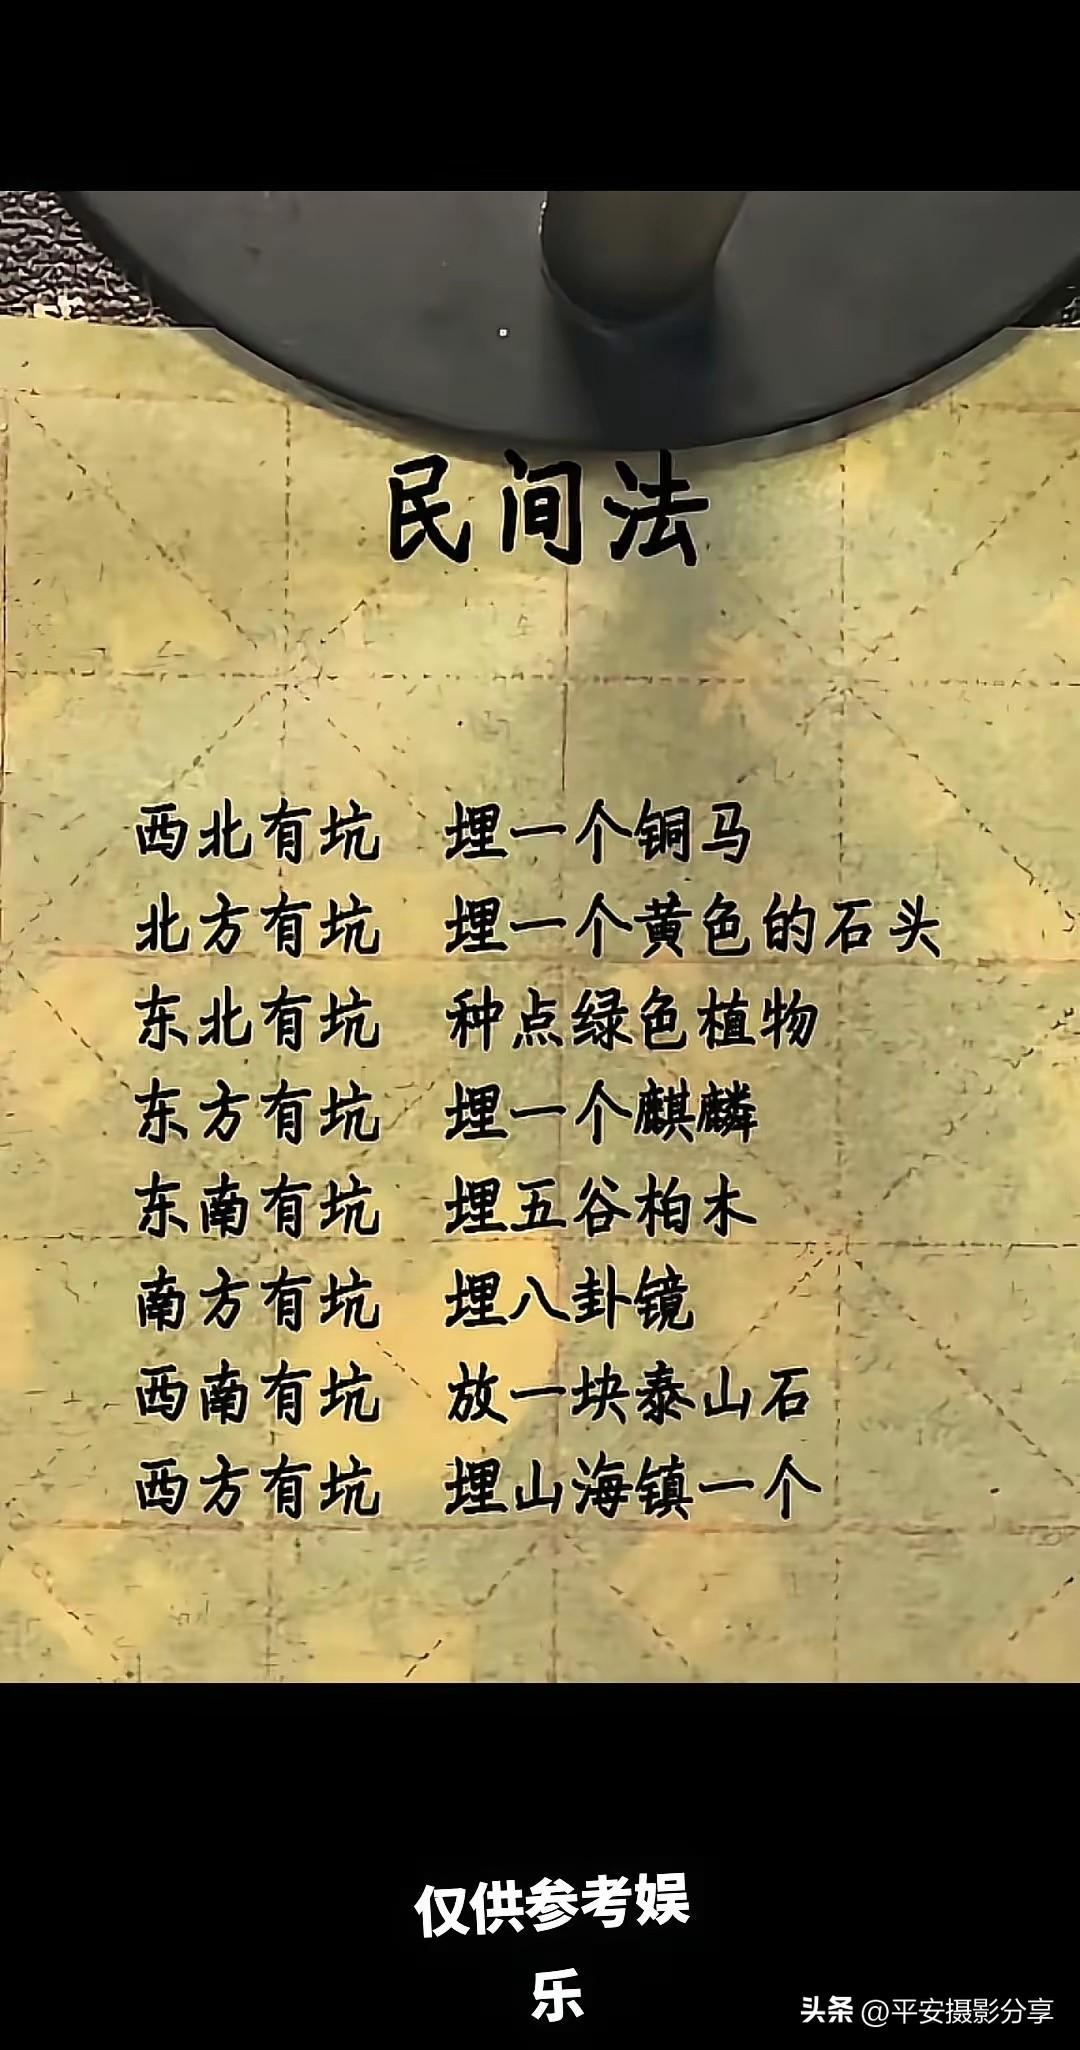 民间法
西北有坑 埋一个铜马
北方有坑 埋一个黄色的石头
东北有坑 种点绿色植物
东方有坑 埋一个麒麟
东南有坑 埋五谷柏木
南方有坑 埋八卦镜
西南有坑 放一块泰山石
西方有坑 埋山海镇一个
仅供参考娱
乐
头条 @平安摄影分享